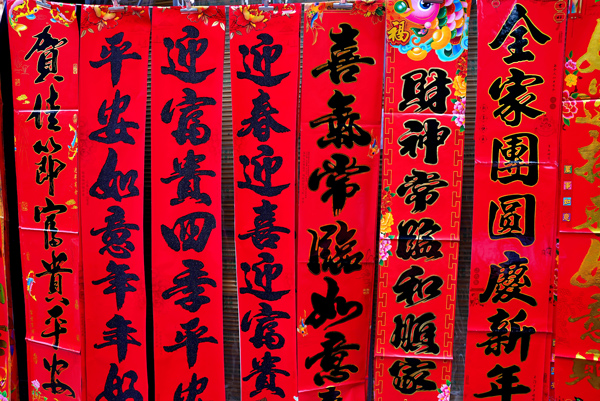 全家團圓慶新年
福
財神常臨和順家
喜氣常臨如意
迎春迎喜迎富貴
迎富貴四季平安
平安如意年年如
賀佳節富貴平安